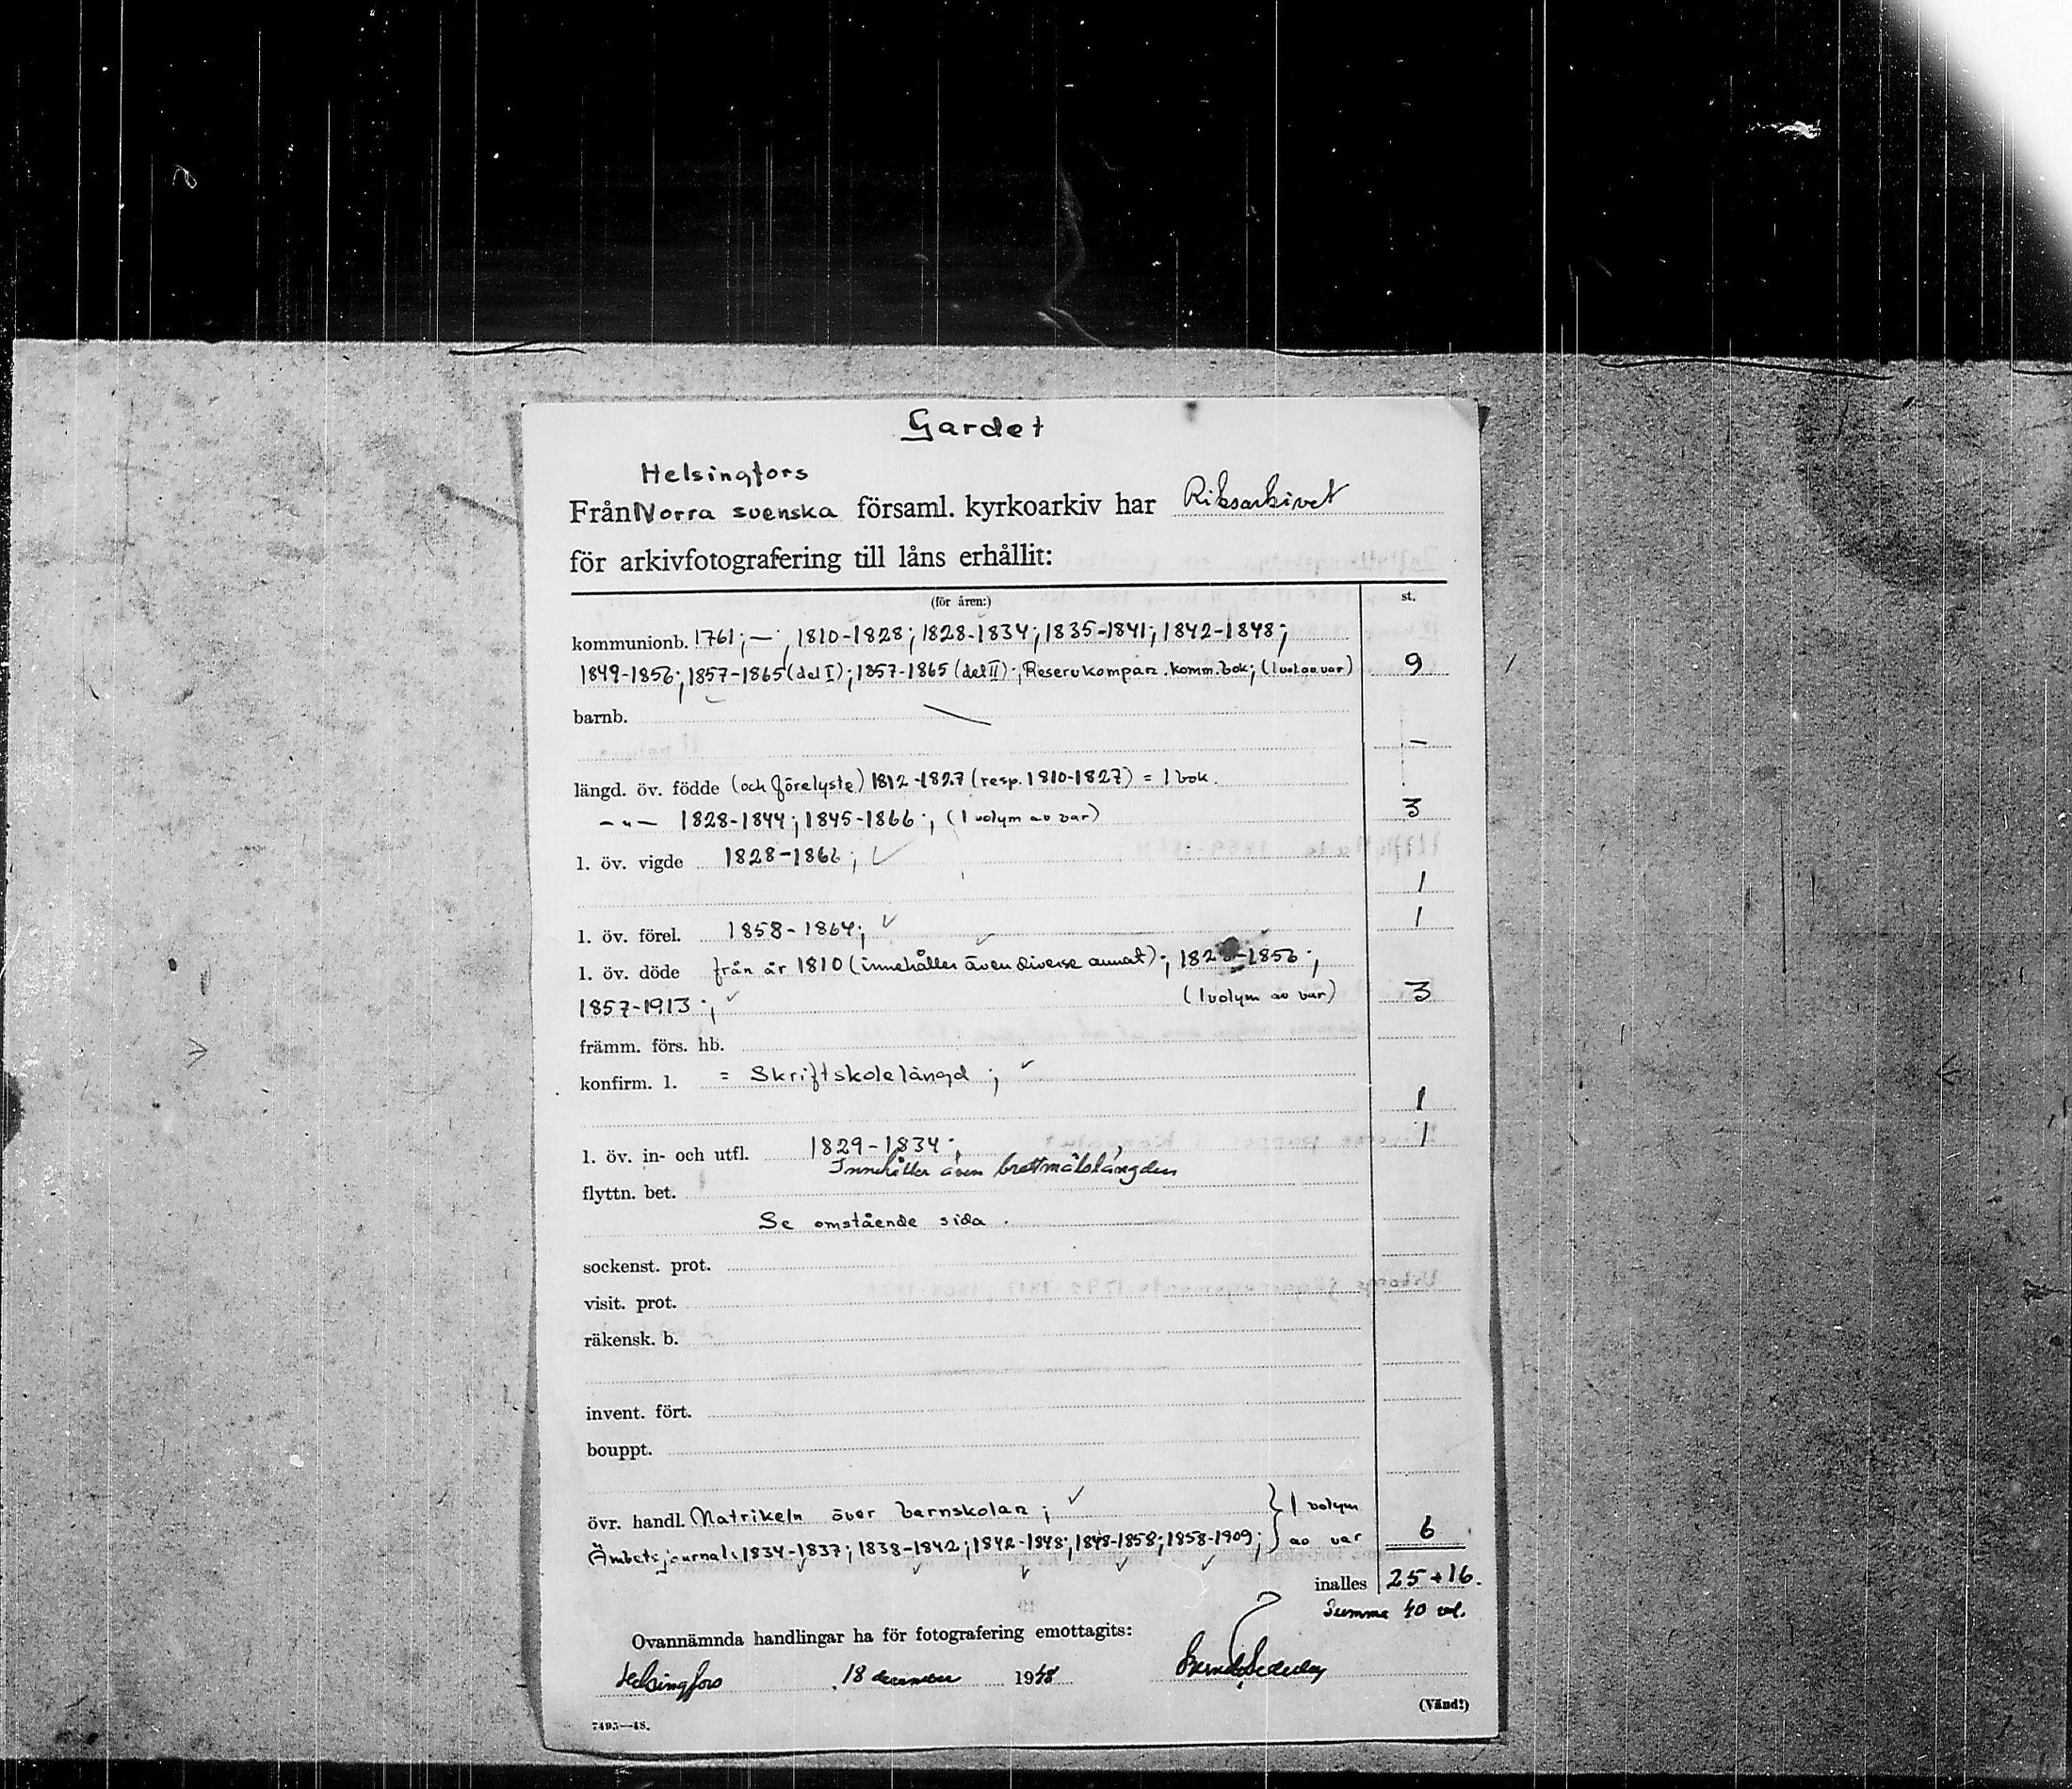 Gardet
Helsingfors
Från Norra svenska församl. kyrkoarkiv har Riksarkivet
för arkivfotografering till låns erhållit:
(för åren:) st.
kommunionb. 1761; —; 1810-1828; 1828-1834; 1835-1841; 1842-1848;
1849-1856; 1857-1865 (del I); 1857-1865 (del II); Reservkompan. komm.bok; (1 vol av var) 9
barnb.
—
längd. öv. födde (och förelyste) 1812-1827 (resp. 1810-1827) = 1 bok.
— „ — 1828-1844; 1845-1866; (1 volym av var) 3
l. öv. vigde 1828-1866;
1
l. öv. förel. 1858-1864; 1
l. öv. döde från år 1810 (innehåller även diverse annat); -1856;
1857-1913; (1 volym av var) 3
främm. förs. hb.
konfirm. l. = Skriftskolelängd;
1
l. öv. in- och utfl. 1829-1834; 1
Innehåller även brottmålslängden
flyttn. bet.
Se omstående sida.
sockenst. prot.
visit. prot.
räkensk. b.
invent. fört.
bouppt.
övr. handl. Matrikeln över barnskolan; } 1 volym
Ämbetsjournal: 1834-1837; 1838-1842; 1842-1848; 1848-1858; 1858-1909; av var 6
inalles 25+16.
Summa 40 vol.
Ovannämnda handlingar ha för fotografering emottagits:
Helsingfors, 18 december 1948
(Vänd!)
7495—48.